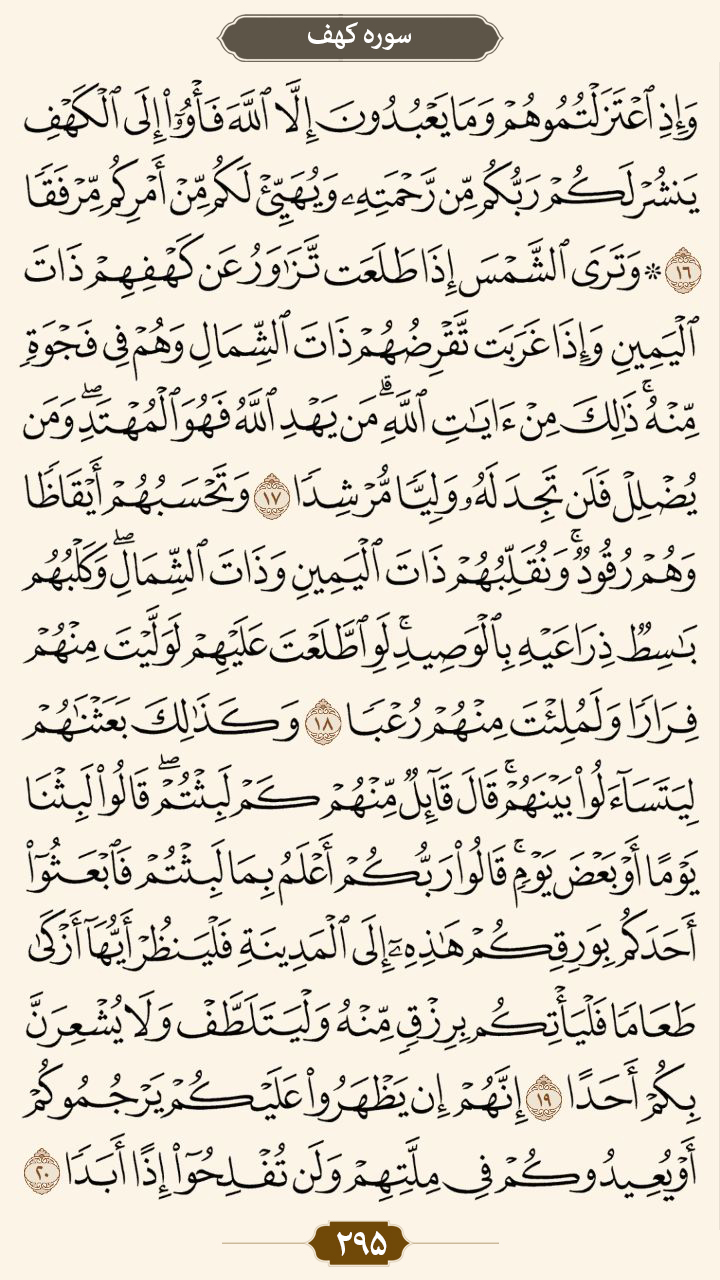 سوره کهف
وَإِذِ ٱعۡتَزَلۡتُمُوهُمۡ وَمَا يَعۡبُدُونَ إِلَّا ٱللَّهَ فَأۡوُۥٓاْ إِلَى ٱلۡكَهۡفِ
يَنشُرۡ لَكُمۡ رَبُّكُم مِّن رَّحۡمَتِهِۦ وَيُهَيِّئۡ لَكُم مِّنۡ أَمۡرِكُم مِّرۡفَقٗا
١٦ ۞ وَتَرَى ٱلشَّمۡسَ إِذَا طَلَعَت تَّزَٰوَرُ عَن كَهۡفِهِمۡ ذَاتَ
ٱلۡيَمِينِ وَإِذَا غَرَبَت تَّقۡرِضُهُمۡ ذَاتَ ٱلشِّمَالِ وَهُمۡ فِي فَجۡوَةٖ
مِّنۡهُۚ ذَٰلِكَ مِنۡ ءَايَٰتِ ٱللَّهِۗ مَن يَهۡدِ ٱللَّهُ فَهُوَ ٱلۡمُهۡتَدِۖ وَمَن
يُضۡلِلۡ فَلَن تَجِدَ لَهُۥ وَلِيّٗا مُّرۡشِدٗا ١٧ وَتَحۡسَبُهُمۡ أَيۡقَاظٗا
وَهُمۡ رُقُودٞۚ وَنُقَلِّبُهُمۡ ذَاتَ ٱلۡيَمِينِ وَذَاتَ ٱلشِّمَالِۖ وَكَلۡبُهُم
بَٰسِطٞ ذِرَاعَيۡهِ بِٱلۡوَصِيدِۚ لَوِ ٱطَّلَعۡتَ عَلَيۡهِمۡ لَوَلَّيۡتَ مِنۡهُمۡ
فِرَارٗا وَلَمُلِئۡتَ مِنۡهُمۡ رُعۡبٗا ١٨ وَكَذَٰلِكَ بَعَثۡنَٰهُمۡ
لِيَتَسَآءَلُواْ بَيۡنَهُمۡۚ قَالَ قَآئِلٞ مِّنۡهُمۡ كَمۡ لَبِثۡتُمۡۖ قَالُواْ لَبِثۡنَا
يَوۡمًا أَوۡ بَعۡضَ يَوۡمٖۚ قَالُواْ رَبُّكُمۡ أَعۡلَمُ بِمَا لَبِثۡتُمۡ فَٱبۡعَثُوٓاْ
أَحَدَكُم بِوَرِقِكُمۡ هَٰذِهِۦٓ إِلَى ٱلۡمَدِينَةِ فَلۡيَنظُرۡ أَيُّهَآ أَزۡكَىٰ
طَعَامٗا فَلۡيَأۡتِكُم بِرِزۡقٖ مِّنۡهُ وَلۡيَتَلَطَّفۡ وَلَا يُشۡعِرَنَّ
بِكُمۡ أَحَدًا ١٩ إِنَّهُمۡ إِن يَظۡهَرُواْ عَلَيۡكُمۡ يَرۡجُمُوكُمۡ
أَوۡ يُعِيدُوكُمۡ فِي مِلَّتِهِمۡ وَلَن تُفۡلِحُوٓاْ إِذًا أَبَدٗا ٢٠
۲۹۵